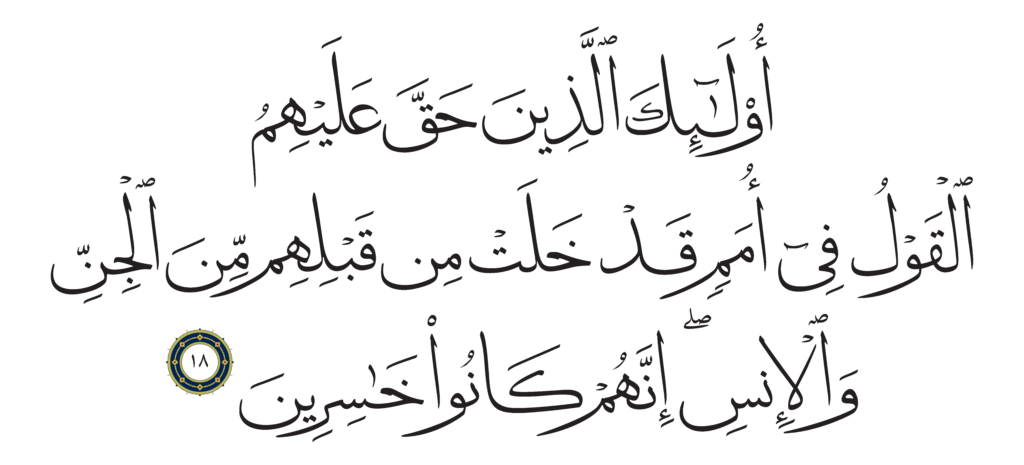 أُو۟لَـٰٓئِكَ ٱلَّذِينَ حَقَّ عَلَيْهِمُ
ٱلْقَوْلُ فِىٓ أُمَمٍ قَدْ خَلَتْ مِن قَبْلِهِم مِّنَ ٱلْجِنِّ
وَٱلْإِنسِ ۖ إِنَّهُمْ كَانُوا۟ خَـٰسِرِينَ ١٨